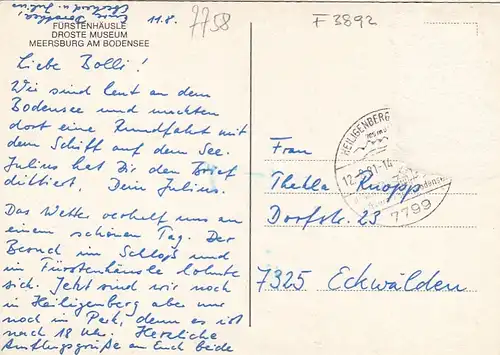 Eure Dorothea
Eberhard und Julius
11.8.
7758
F 3892
FÜRSTENHÄUSLE
DROSTE MUSEUM
MEERSBURG AM BODENSEE
Liebe Bolli!
Wir sind heut an dem
Bodensee und machten
dort eine Rundfahrt mit
dem Schiff auf dem See.
Julius hat Dir den Brief
diktiert, Dein Julius.
Das Wetter verhalf uns an
einem schönen Tag. Der
Besuch im Schloß und
im Fürstenhäusle lohnte
sich. Jetzt sind wir noch
in Heiligenberg aber nur
noch im Park, denn es ist
nach 18 Uhr. Herzliche
Ausflugsgrüße an Euch beide
HEILIGENBERG
12.8.91-14
7799
Frau
Thekla Knopp
Dorfstr. 23
7325 Eckwälden